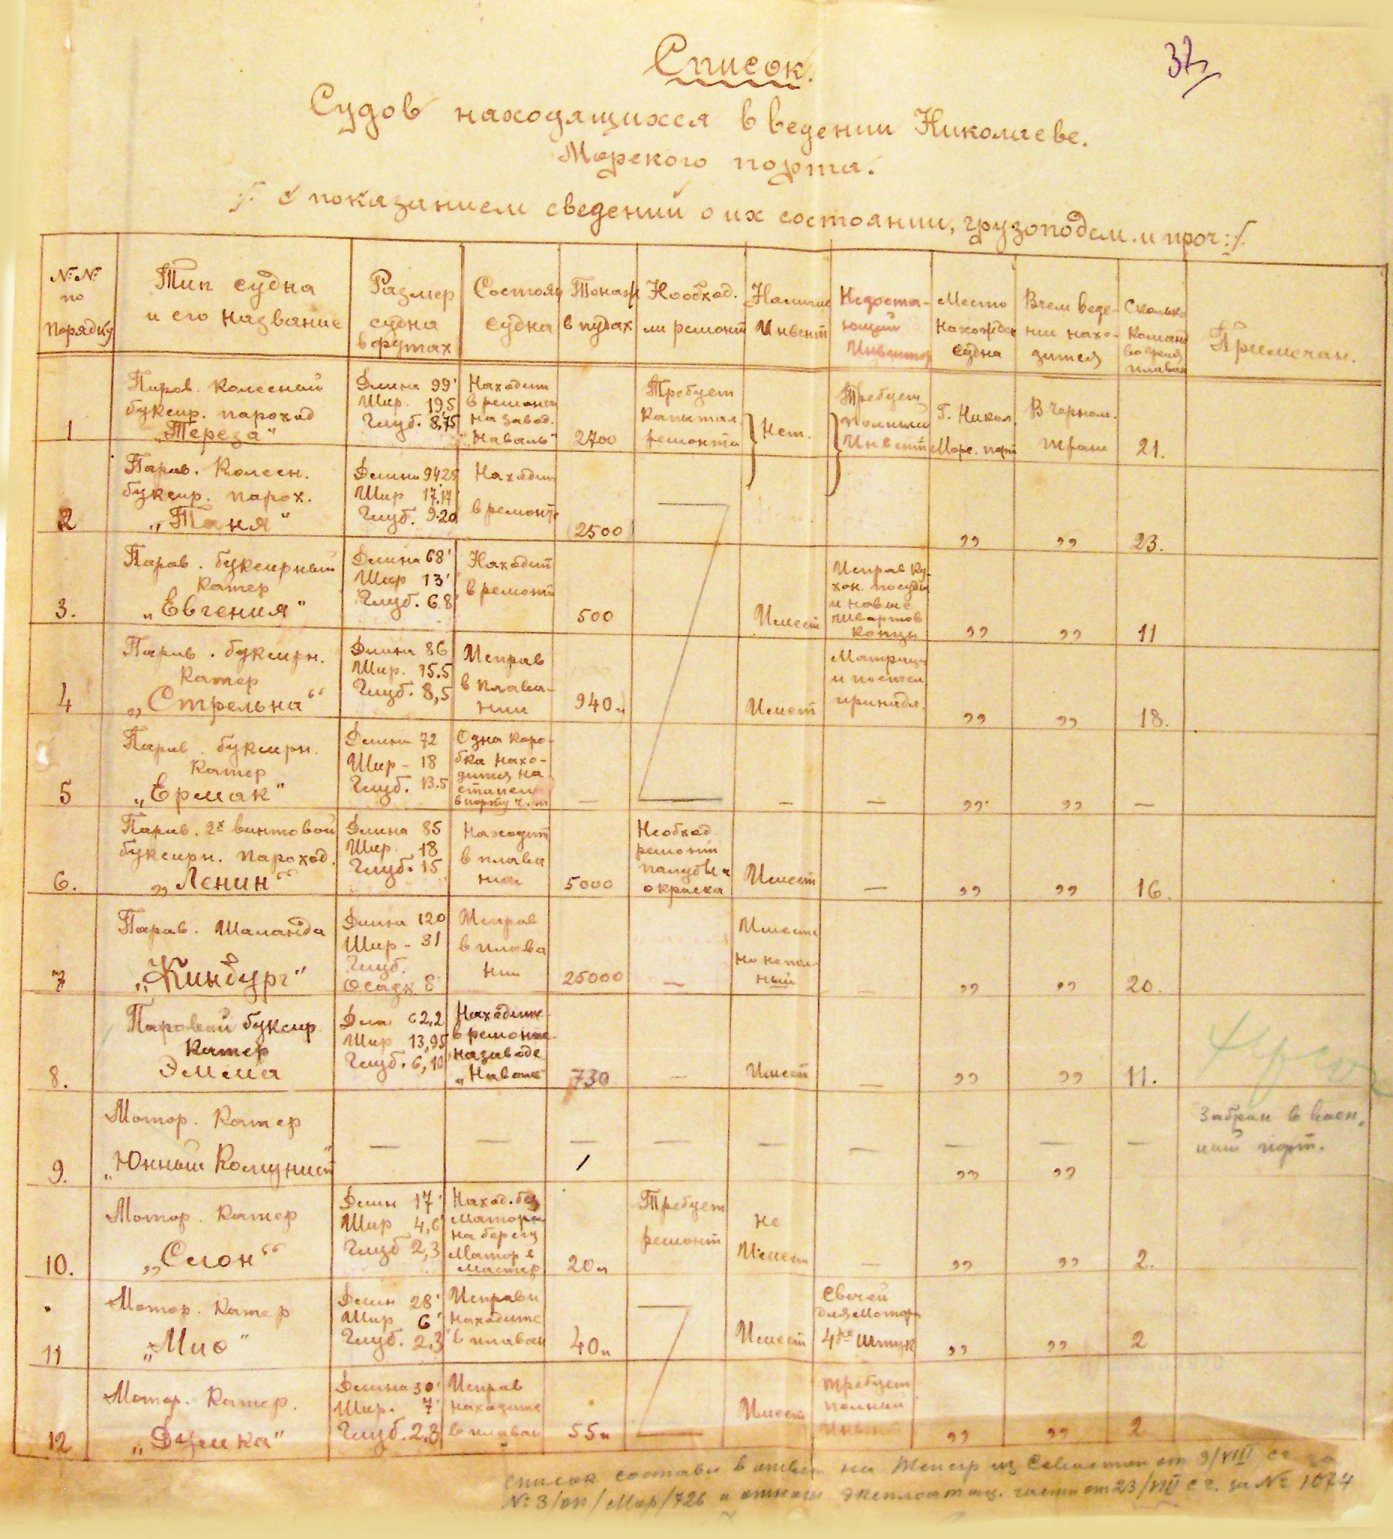 37
Список.
Судов находящихся в ведении Николаеве.
Морского порта.
/: с показанием сведений о их состоянии, грузоподем. и проч:/.
№№ по порядку
Тип судна и его название
Размер судна в футах
Состоян судна
Тонаж в пудах
Необход. ли ремонт
Наличие Инвент
Недоста-ющий Инвентар
Место нахожден судна
В чем веде-нии нахо-дится
Сколько коман во время плаван
Примечан.
1
Паров. колесный
буксир. пароход
„Тереза“
Длина 99'
Шир. 19,5
Глуб. 8,75
Находит
в ремонт
на завод.
„Наваль“
2700
Требует
капитал.
ремонта
Нет.
Требует
полный
Инвент
Г. Никол.
Морс. порт
В Черном.
Тране
21.
2
Паров. Колесн.
буксир. парох.
„Таня“
Длина 94,25
Шир 17,17
Глуб. 9.20
Находит
в ремонте
2500
„
„
23.
3.
Паров. буксирный
катер
„Евгения“
Длина 68'
Шир 13'
Глуб. 6.8
Находит
в ремонт
500
Имеет
Исправ ку-
хон посуды
и новые
швартов
концы
„
„
11
4
Паров. буксирн.
катер
„Стрельна“
Длина 86
Шир. 15.5
Глуб. 8,5
Исправ
в плава-
нии
940 п
Имеет
Матрацы
и постел
принадл.
„
„
18.
5
Паров. буксирн.
катер
„Ермак“
Длина 72
Шир - 18
Глуб. 13.5
Одна коро-
бка нахо-
дится на
стапел
в порту
—
—
—
„
„
—
6.
Паров. 2х винтовой
буксирн. пароход.
„Ленин“
Длина 85
Шир. 18
Глуб. 15
Находит
в плава
нии
5000
Необход
ремонт
палубы и
окраска
Имеет
—
„
„
16.
7
Паров. Шаланда
„Кинбург“
Длина 120
Шир - 31
Глуб.
Осадк 8'
Исправ
в плава
нии
25000
—
Имеетс
но не пол-
ный
—
„
„
20.
8.
Паровой буксир
катер
Эмма
Дли 62,2
Шир 13,95
Глуб. 6,10
Находитс
в ремонте
на заводе
„Наваль“
730
—
Имеет
—
„
„
11.
9.
Мотор. Катер
„Юнный Комунист
—
—
—
—
—
—
—
„
—
„
—
Забран в воен,
ный порт.
10.
Мотор. Катер
„Слон“
Длин 17'
Шир 4,6'
Глуб 2,3
Наход. без
мотора
на берегу
Мотор в
мастер
20 п
Требует
ремонт
не
Имеет
—
„
„
2.
11
Мотор. Катер
„Мио“
Длин 28'
Шир 6'
Глуб. 2,3
Исправн
находитс
в плаван
40 п
Имеет
Свечей
для мотора
4ре штук
„
„
2
12
Мотор. Катер.
„Думка“
Длина 30'
Шир. 7'
Глуб. 2,8
Исправ
находитс
в плаван
55 п
Имеет
требует
полный
Инвент
„
„
2
Список составлен в ответ на из Севастоп от 9/VIII с.г. за
№ 3/оп/Мор/726 и отнош эксплоатац. части от 23/VIII с г. за № 1074